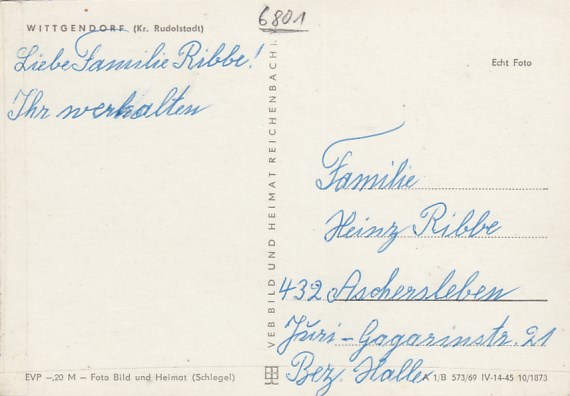 6801
WITTGENDORF (Kr. Rudolstadt)
Liebe Familie Ribbe!
Ihr werhalten
VEB BILD UND HEIMAT REICHENBACH i.
Echt Foto
Familie
Heinz Ribbe
432 Aschersleben
Juri-Gagarinstr. 21
Bez. Halle
EVP –,20 M – Foto Bild und Heimat (Schlegel)
A 1/B 573/69 IV-14-45 10/1873